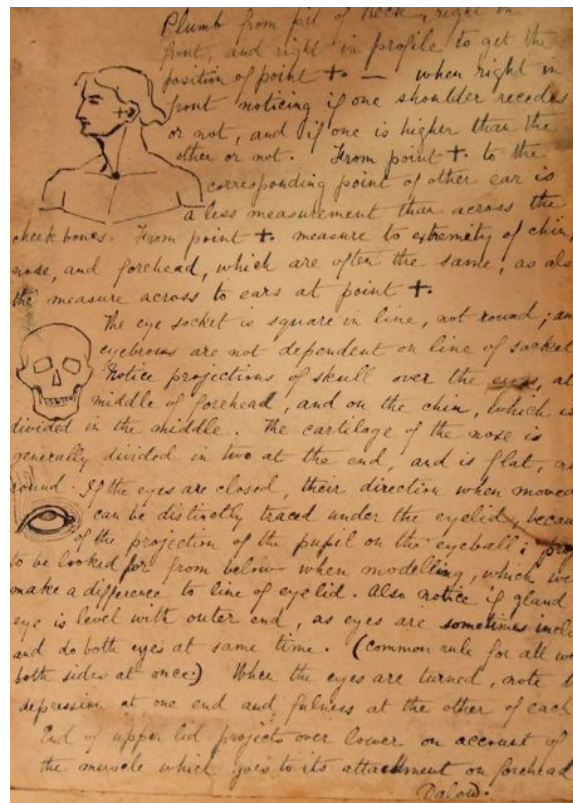 Plumb from pit of neck, right in
front, and right in profile to get the
position of point +. — when right in
front noticing if one shoulder recedes
or not, and if one is higher than the
other or not. From point +. to the
corresponding point of other ear is
a less measurement than across the
cheek bones. From point +. measure to extremity of chin,
nose, and forehead, which are often the same, as also
the measure across to ears at point +.
The eye socket is square in line, not round; and
eyebrows are not dependent on line of socket
Notice projections of skull over the eyes, at
middle of forehead, and on the chin, which is
divided in the middle. The cartilage of the nose is
generally divided in two at the end, and is flat, not
round. If the eyes are closed, their direction when moved
can be distinctly traced under the eyelid, because
of the projection of the pupil on the eyeball;
to be looked for from below when modelling, which
make a difference to line of eyelid. Also notice if gland
eye is level with outer end, as eyes are sometimes
and do both eyes at same time. (common rule for all
both sides at once.) When the eyes are turned, note
depression at one end and fulness at the other of each
End of upper lid projects over lower on account of
the muscle which goes to its attachment on forehead
Dalou.